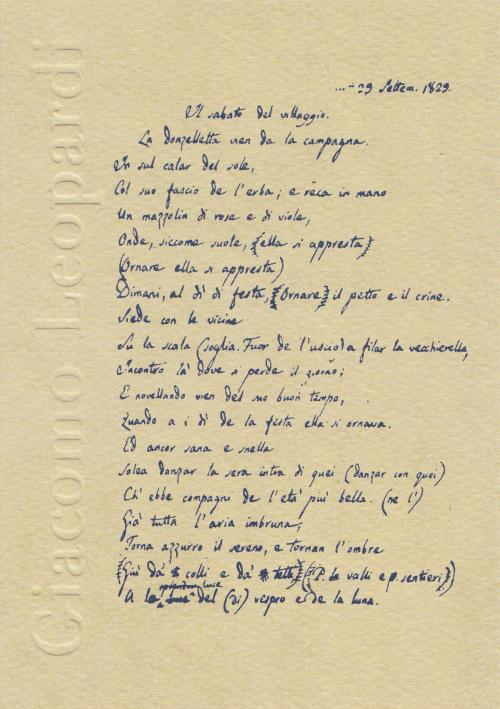 Giacomo Leopardi
... - 29 Settem. 1829.
Il sabato del villaggio.
La donzelletta vien da la campagna.
In sul calar del sole,
Col suo fascio de l'erba; e rèca in mano
Un mazzolin di rose e di viole,
Onde, siccome suole, {ella si appresta}
(Ornare ella si appresta)
Dimani, al dì di festa, {Ornare} il petto e il crine.
Siede con le vicine
Su la scala (soglia. Fuor de l'uscio) a filar la vecchierella,
Incontro là dove si perde il giorno;
E novellando vien del suo buon tempo,
Quando a i dì de la festa ella si ornava.
Ed ancor sana e snella
Solea danzar la sera intra di quei (danzar con quei)
Ch' ebbe compagni de l'età più bella. (ne l')
Già tutta l'aria imbruna,
Torna azzurro il sereno, e tornan l'ombre
{Giù da' colli e da' tetti} (P. le valli e p. sentieri)
A luce del (di) vespro e de la luna.